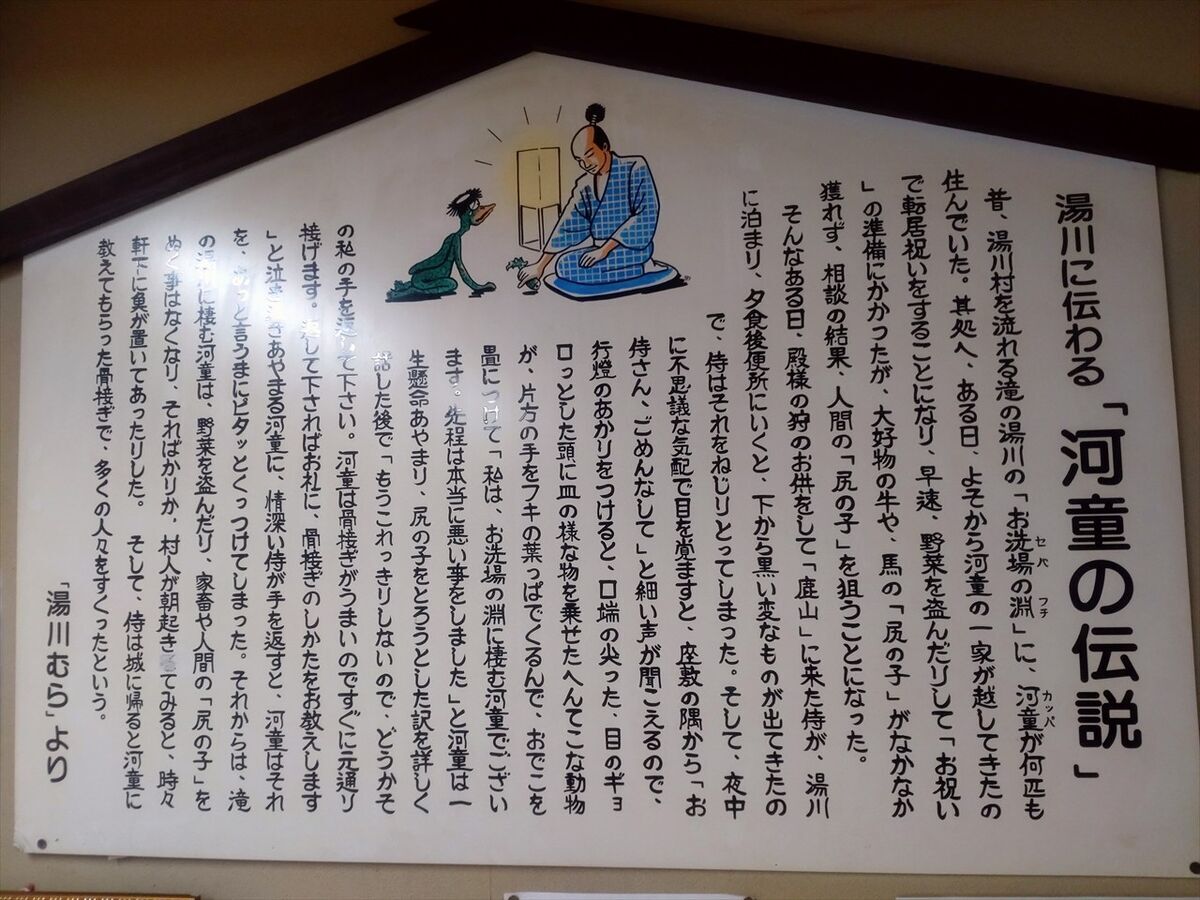 湯川に伝わる「河童の伝説」
昔、湯川村を流れる滝の湯川の「お洗場の淵」に、河童が何匹も
セバ フチ
カッパ
住んでいた。其処へ、ある日、よそから河童の一家が越してきたの
で転居祝いをすることになり、早速、野菜を盗んだりして「お祝い
」の準備にかかったが、大好物の牛や、馬の「尻の子」がなかなか
獲れず、相談の結果、人間の「尻の子」を狙うことになった。
そんなある日、殿様の狩のお供をして「鹿山」に来た侍が、湯川
に泊まり、夕食後便所にいくと、下から黒い変なものが出てきたの
で、侍はそれをねじりとってしまった。そして、夜中
に不思議な気配で目を覚ますと、座敷の隅から「お
侍さん、ごめんなして」と細い声が聞こえるので、
行燈のあかりをつけると、口端の尖った、目のギョ
ロっとした頭に皿の様な物を乗せたへんてこな動物
が、片方の手をフキの葉っぱでくるんで、おでこを
畳につけて「私は、お洗場の淵に棲む河童でござい
ます。先程は本当に悪い事をしました」と河童は一
生懸命あやまり、尻の子をとろうとした訳を詳しく
話した後で「もうこれっきりしないので、どうかそ
の私の手を返して下さい。河童は骨接ぎがうまいのですぐに元通り
接げます。返して下さればお礼に、骨接ぎのしかたをお教えします
」と泣き泣きあやまる河童に、情深い侍が手を返すと、河童はそれ
を、あっと言うまにピタッとくっつけてしまった。それからは、滝
の湯川に棲む河童は、野菜を盗んだり、家畜や人間の「尻の子」を
ぬく事はなくなり、そればかりか、村人が朝起きてみると、時々
軒下に魚が置いてあったりした。 そして、侍は城に帰ると河童に
教えてもらった骨接ぎで、多くの人々をすくったという。
「湯川むら」より